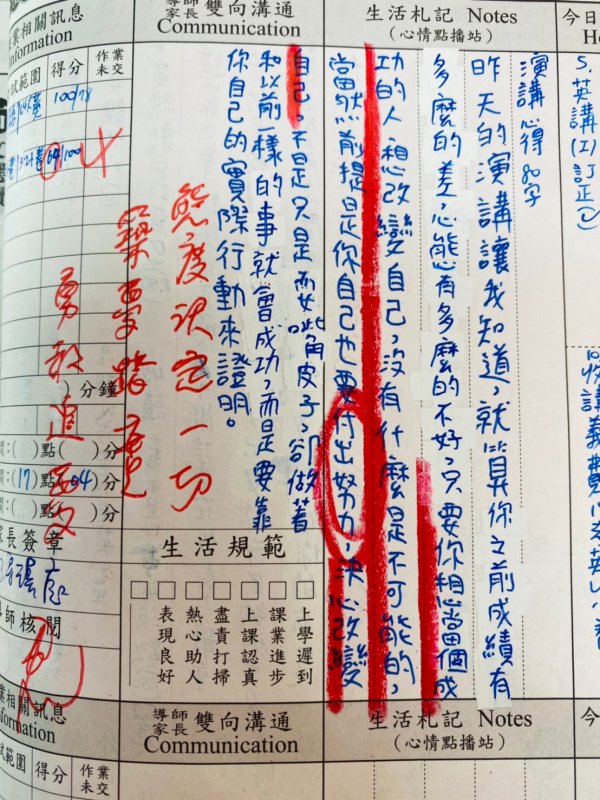 生活札記 Notes
(心情點播站)
演講心得 80字
昨天的演講讓我知道，就算你之前成績有
多麼的差，心能有多麼的不好，只要你想當個成
功的人，想改變自己，沒有什麼是不可能的，
當然前提是你自己也要付出努力，決心改變
自己，不是只是耍嘴角皮子，卻做著
和以前一樣的事就會成功，而是要靠
你自己的實際行動來證明。
導師
家長
雙向溝通
Communication
態度決定一切
築夢踏實
勇敢追夢
生活規範
上學遲到
課業進步
上課認真
盡責打掃
熱心助人
表現良好
業相關訊息
Information
試範圍
得分
作業
未交
100/78
64/100
)分鐘
:( )點( )分
:(17)點(04)分
:( )點( )分
家長簽章
導師核閱
今日
5.英講(1)訂正
導師
家長
雙向溝通
Communication
生活札記 Notes
(心情點播站)
業相關訊息
Information
試範圍
得分
作業
未交
今